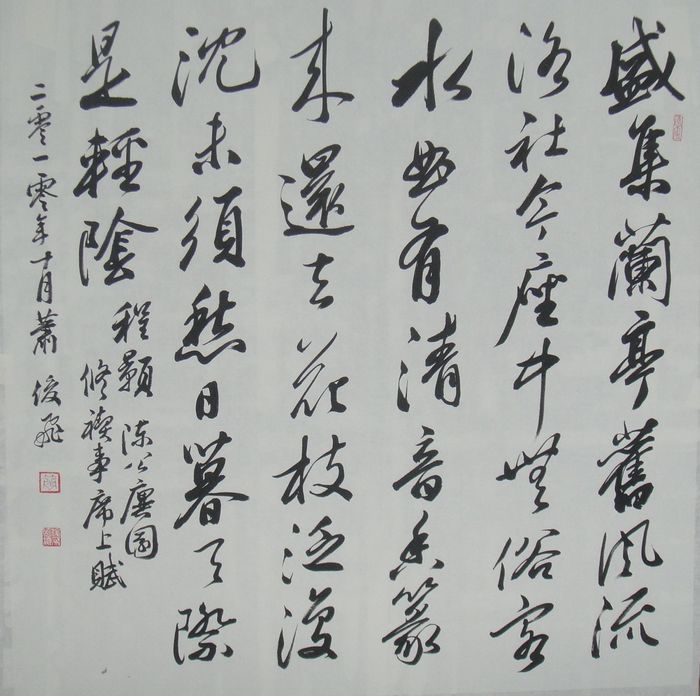 盛集蘭亭舊風流
洛社今座中無俗客
水曲有清音香篆
来還去花枝泛復
沈未須愁日暮天際
是輕陰
程顥 陈公廙園
修禊事席上賦
二零一零年十月蕭俊飛